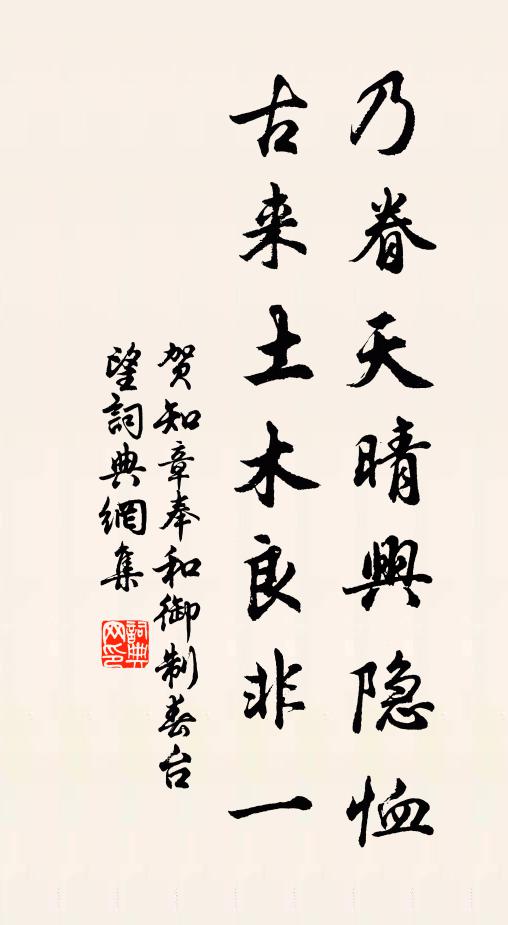 乃眷天晴興隐恤
古来土木良非一
贺知章奉和御制春台
望詞典網集
詞典
网印